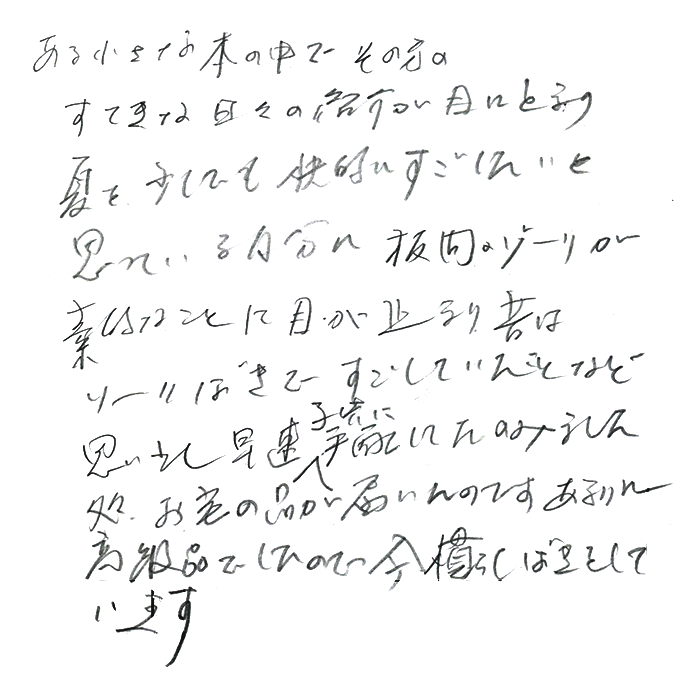 ある小さな本の中でその方の
すてきな日々の紹介が目にとまり
夏を少しでも快的にすごしたいと
思っている自分に板間のゾーリが
楽なことに目が止まり昔は
ゾーリばきですごしていたことなど
思い出し早速子供に手配したのみました
処お宅の品が届いたのですあまりに
高級品でしたので今横ばきをして
います